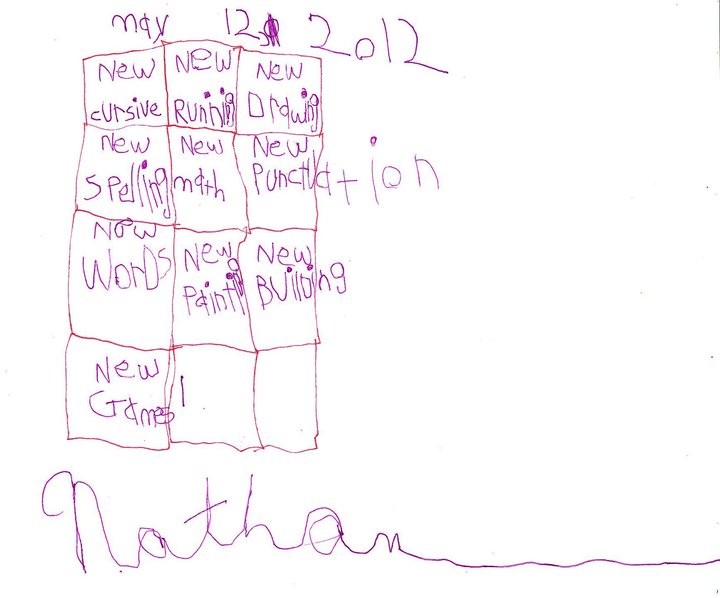 may 12, 2012
New
cursive
New
Running
New
Drawing
New
Spelling
New
math
New
Punctuation
New
Words
New
Painting
New
Building
New
Games
Nathan